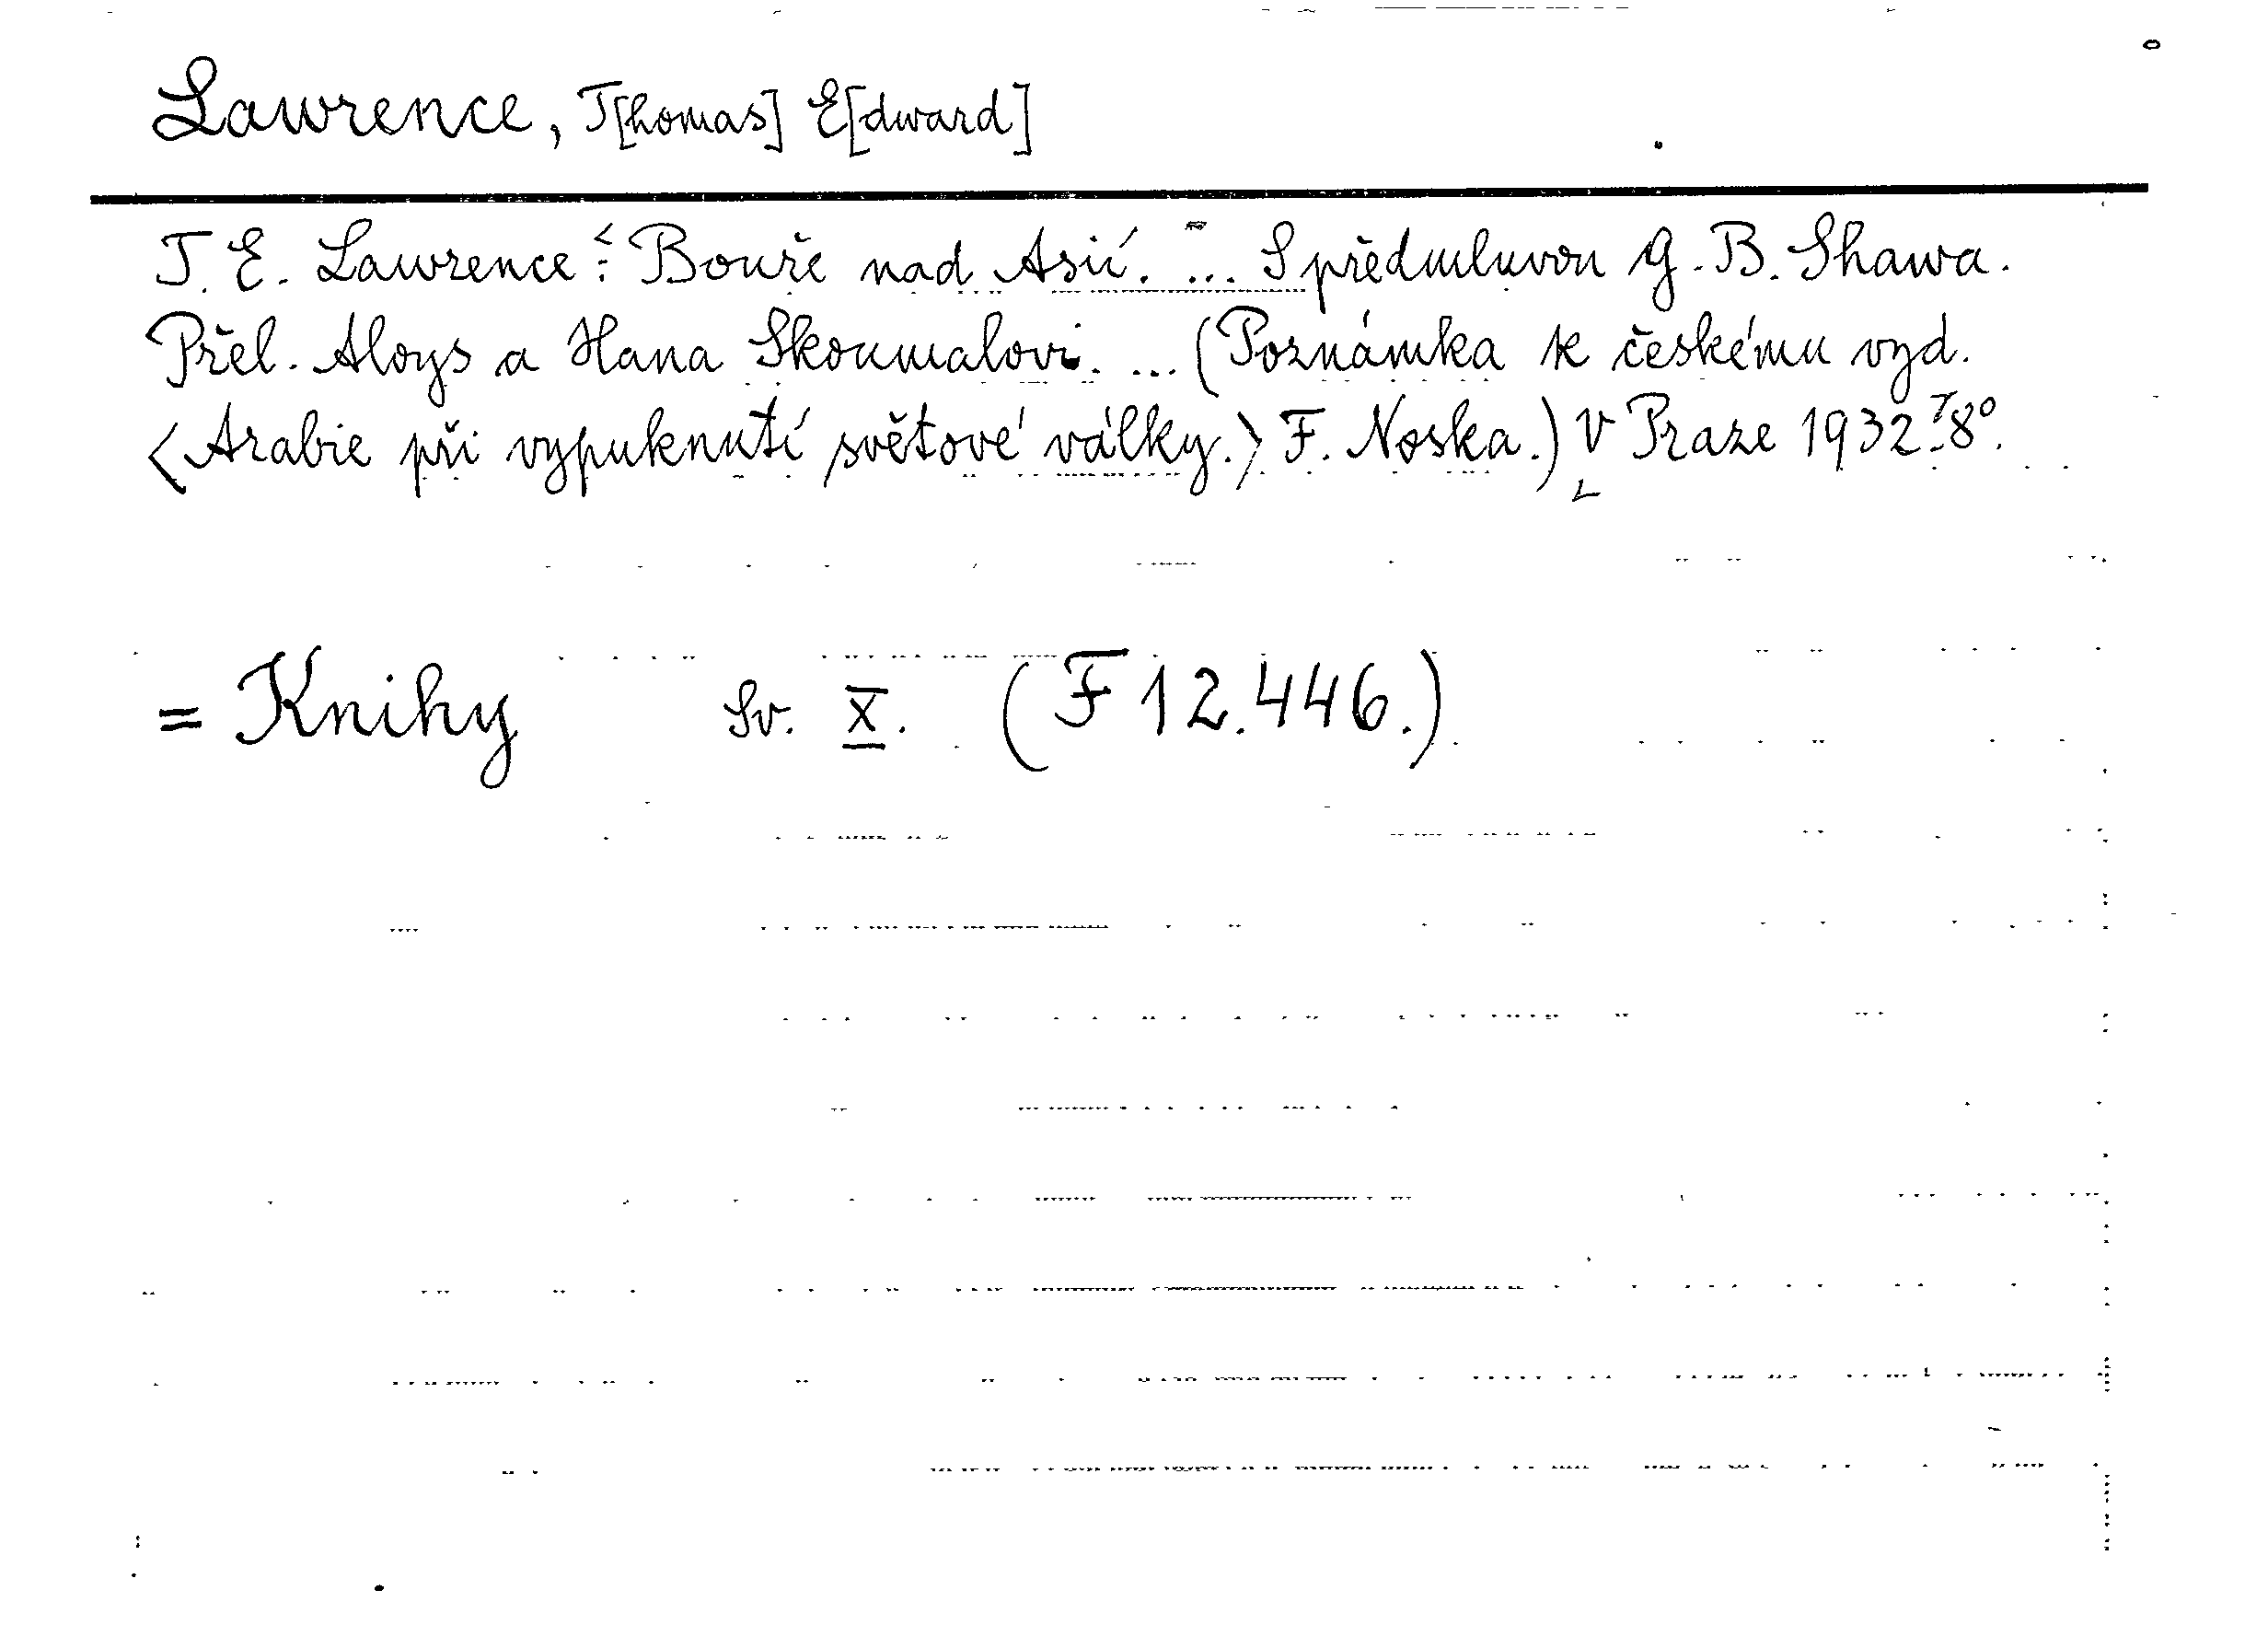 Lawrence, T[homas] E[dward]
T. E. Lawrence: Bouře nad Asií. ... S předmluvou G. B. Shawa.
Přel. Aloys a Hana Skoumalovi. ... (Poznámka k českému vyd.
<Arabie při vypuknutí světové války.> F. Noska.) V Praze 1932. 8°.
= Knihy Sv. X. (F 12.446.)